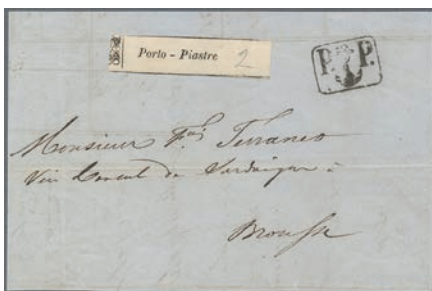 Porto - Piastre 2
P. P.
Monsieur
Vice Consul de Sardaigne à
Brousse